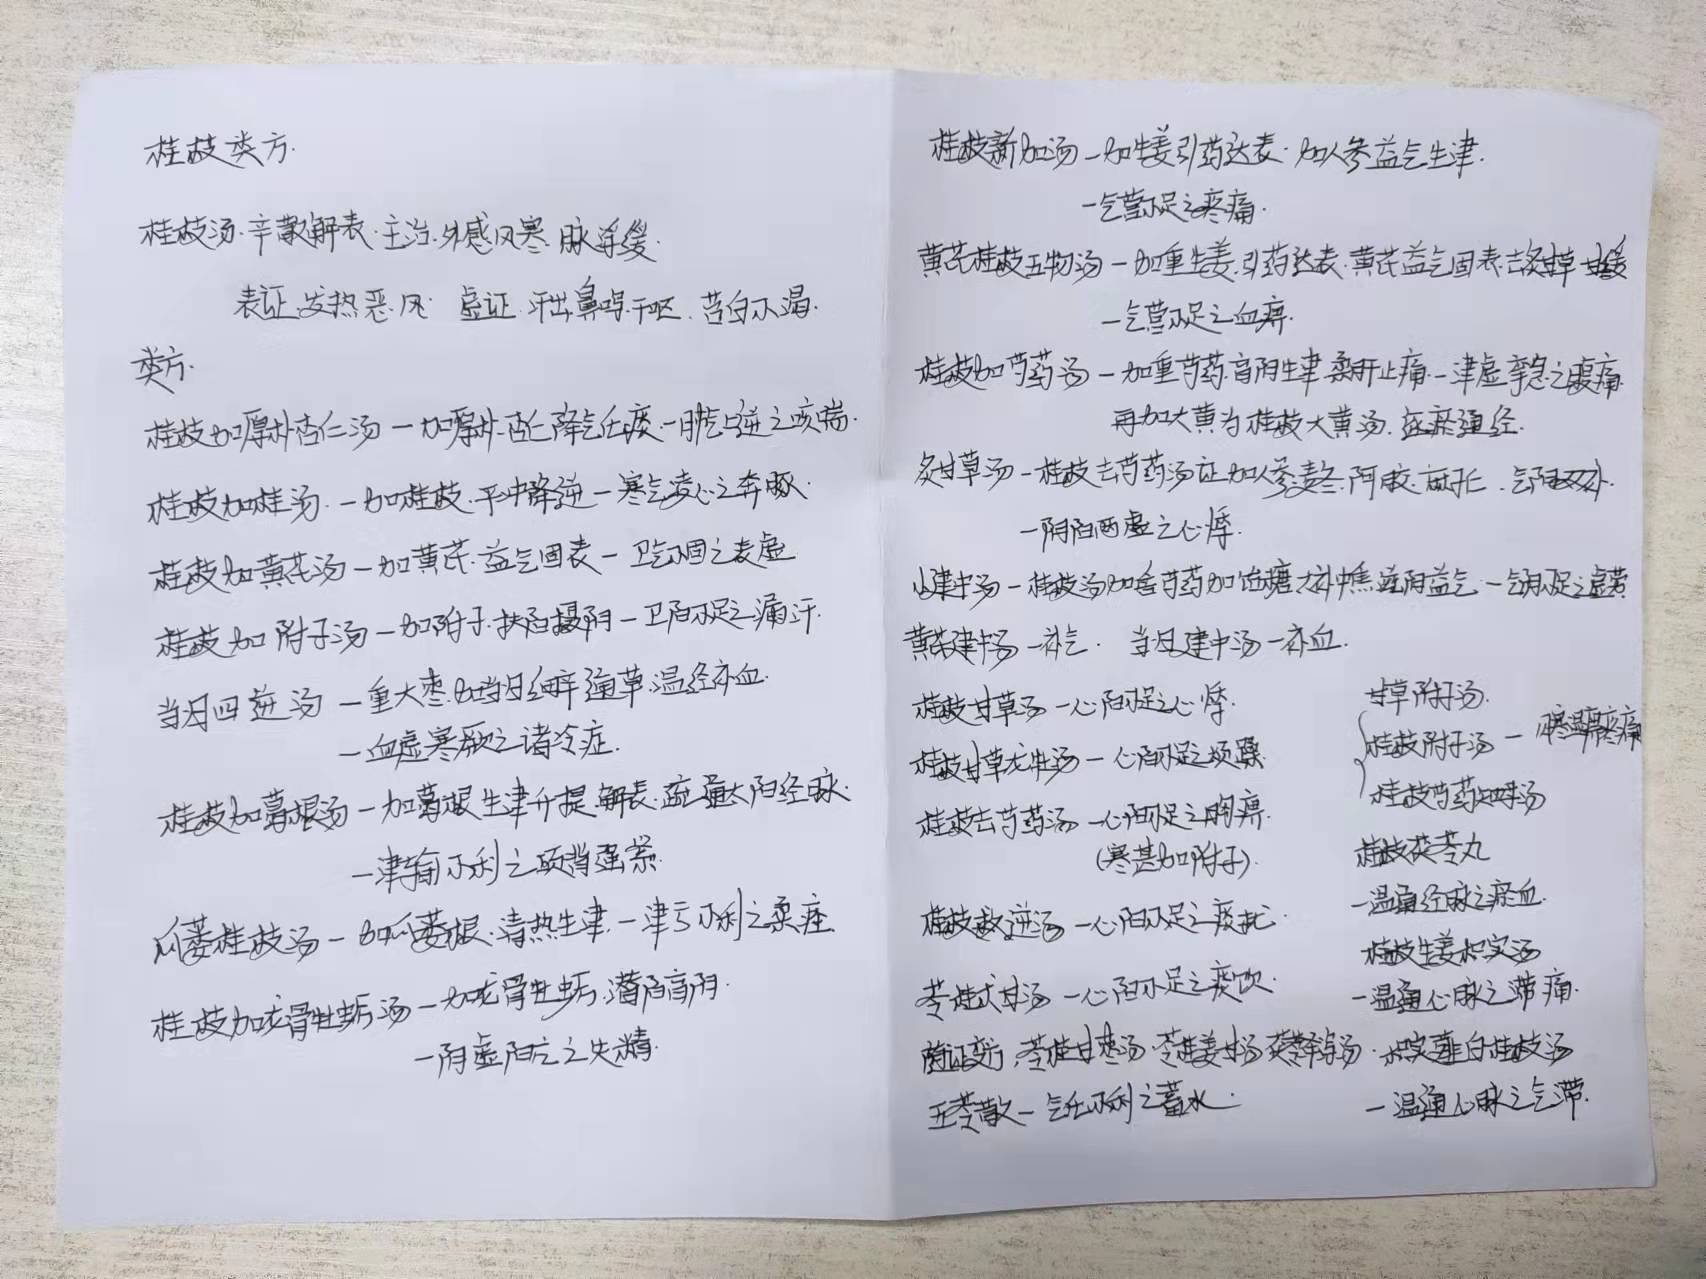 桂枝类方.
桂枝汤.辛散解表.主治.外感风寒.脉浮缓.
表证.发热恶风. 虚证.汗出鼻鸣干呕.苔白不渴.
类方.
桂枝加厚朴杏仁汤一加厚朴.杏仁降气化痰.一肺气上逆之咳喘.
桂枝加桂汤.一加桂枝.平冲降逆一寒气凌心之奔豚.
桂枝加黄芪汤一加黄芪.益气固表一卫气不固之表虚
桂枝加附子汤一加附子.扶阳摄阴一卫阳不足之漏汗.
当归四逆汤一重大枣.加当归细辛通草.温经补血.
一血虚寒厥之诸冷症.
桂枝加葛根汤一加葛根生津升提.解表.疏通太阳经脉.
一津输不利之项背强紧.
瓜蒌桂枝汤一加瓜蒌根.清热生津.一津亏不利之柔痉.
桂枝加龙骨牡蛎汤一加龙骨牡蛎.潜阳育阴.
一阴虚阳亢之失精.
桂枝新加汤一加生姜引药达表.加人参益气生津.
一气营不足之疼痛.
黄芪桂枝五物汤一加重生姜.引药达表.黄芪益气固表.去炙甘草甘缓
一气营不足之血痹.
桂枝加芍药汤一加重芍药.育阴生津柔肝止痛.一津虚挛急之腹痛.
再加大黄为桂枝大黄汤.逐瘀通经.
炙甘草汤一桂枝去芍药汤证.加人参.麦冬.阿胶.麻仁.气阴双补.
一阴阳两虚之心悸.
小建中汤一桂枝汤加倍芍药加饴糖.大补中焦.滋阴益气.一气阴不足之虚劳
黄芪建中汤一补气. 当归建中汤一补血.
桂枝甘草汤一心阳不足之心悸.
桂枝甘草龙牡汤一心阳不足之烦躁.
桂枝去芍药汤一心阳不足之胸痹.
(寒甚加附子).
桂枝救逆汤一心阳不足之痰扰.
苓桂术甘汤一心阳不足之痰饮.
随证变方,苓桂甘枣汤.苓桂姜甘汤.茯苓泽泻汤.
五苓散一气化不利之蓄水.
甘草附子汤.
桂枝附子汤一寒湿痹疼痛
桂枝芍药知母汤
桂枝茯苓丸
一温通经脉之瘀血.
桂枝生姜枳实汤
一温通心脉之滞痛.
枳实薤白桂枝汤
一温通心脉之气滞.